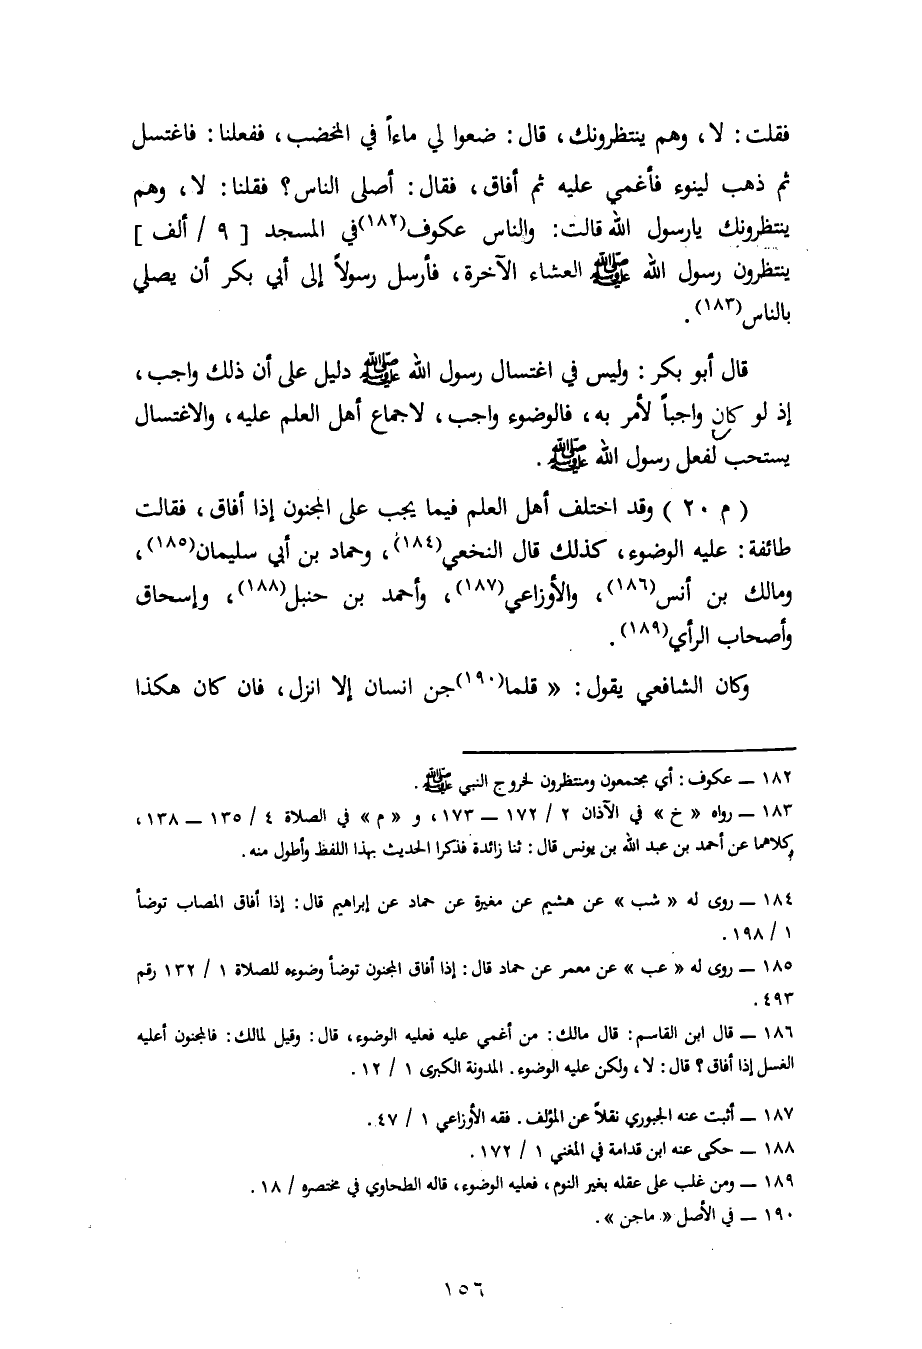 فقلت : لا ، وهم ينتظرونك ، قال : ضعوا لي ماءاً في المخضب ، ففعلنا : فاغتسل
ثم ذهب لينوء فأغمي عليه ثم أفاق ، فقال : أصلى الناس ؟ فقلنا : لا ، وهم
ينتظرونك يارسول الله قالت : والناس عكوف(١٨٢)في المسجد [ ٩ / ألف ]
ينتظرون رسول الله ﷺ العشاء الآخرة ، فأرسل رسولاً إلى أبي بكر أن يصلي
بالناس(١٨٣) .
قال أبو بكر : وليس في اغتسال رسول الله ﷺ دليل على أن ذلك واجب ،
إذ لو كان واجباً لأمر به ، فالوضوء واجب ، لاجماع أهل العلم عليه ، والاغتسال
يستحب لفعل رسول الله ﷺ .
( م ٢٠ ) وقد اختلف أهل العلم فيما يجب على المجنون إذا أفاق ، فقالت
طائفة : عليه الوضوء ، كذلك قال النخعي(١٨٤) ، وحماد بن أبي سليمان(١٨٥) ،
ومالك بن أنس(١٨٦) ، والأوزاعي(١٨٧) ، وأحمد بن حنبل(١٨٨) ، وإسحاق
وأصحاب الرأي(١٨٩) .
وكان الشافعي يقول : « قلما(١٩٠)جن انسان إلا انزل ، فان كان هكذا
١٨٢ ـ عكوف : أي مجتمعون ومنتظرون لخروج النبي ﷺ .
١٨٣ ـ رواه « خ » في الآذان ٢ / ١٧٢ ـ ١٧٣ ، و « م » في الصلاة ٤ / ١٣٥ ـ ١٣٨ ،
وكلاهما عن أحمد بن عبد الله بن يونس قال : ثنا زائدة فذكرا الحديث بهذا اللفظ وأطول منه .
١٨٤ ـ روى له « شب » عن هشيم عن مغيرة عن حماد عن إبراهيم قال : إذا أفاق المصاب توضأ
١ / ١٩٨ .
١٨٥ ـ روى له « عب » عن معمر عن حماد قال : إذا أفاق المجنون توضأ وضوءه للصلاة ١ / ١٣٢ رقم
٤٩٣ .
١٨٦ ـ قال ابن القاسم : قال مالك : من أغمي عليه فعليه الوضوء ، قال : وقيل لمالك : فالمجنون أعليه
الغسل إذا أفاق ؟ قال : لا ، ولكن عليه الوضوء . المدونة الكبرى ١ / ١٢ .
١٨٧ ـ أثبت عنه الجبوري نقلاً عن المؤلف . فقه الأوزاعي ١ / ٤٧ .
١٨٨ ـ حكى عنه ابن قدامة في المغني ١ / ١٧٢ .
١٨٩ ـ ومن غلب على عقله بغير النوم ، فعليه الوضوء ، قاله الطحاوي في مختصره / ١٨ .
١٩٠ ـ في الأصل « ماجن » .
١٥٦